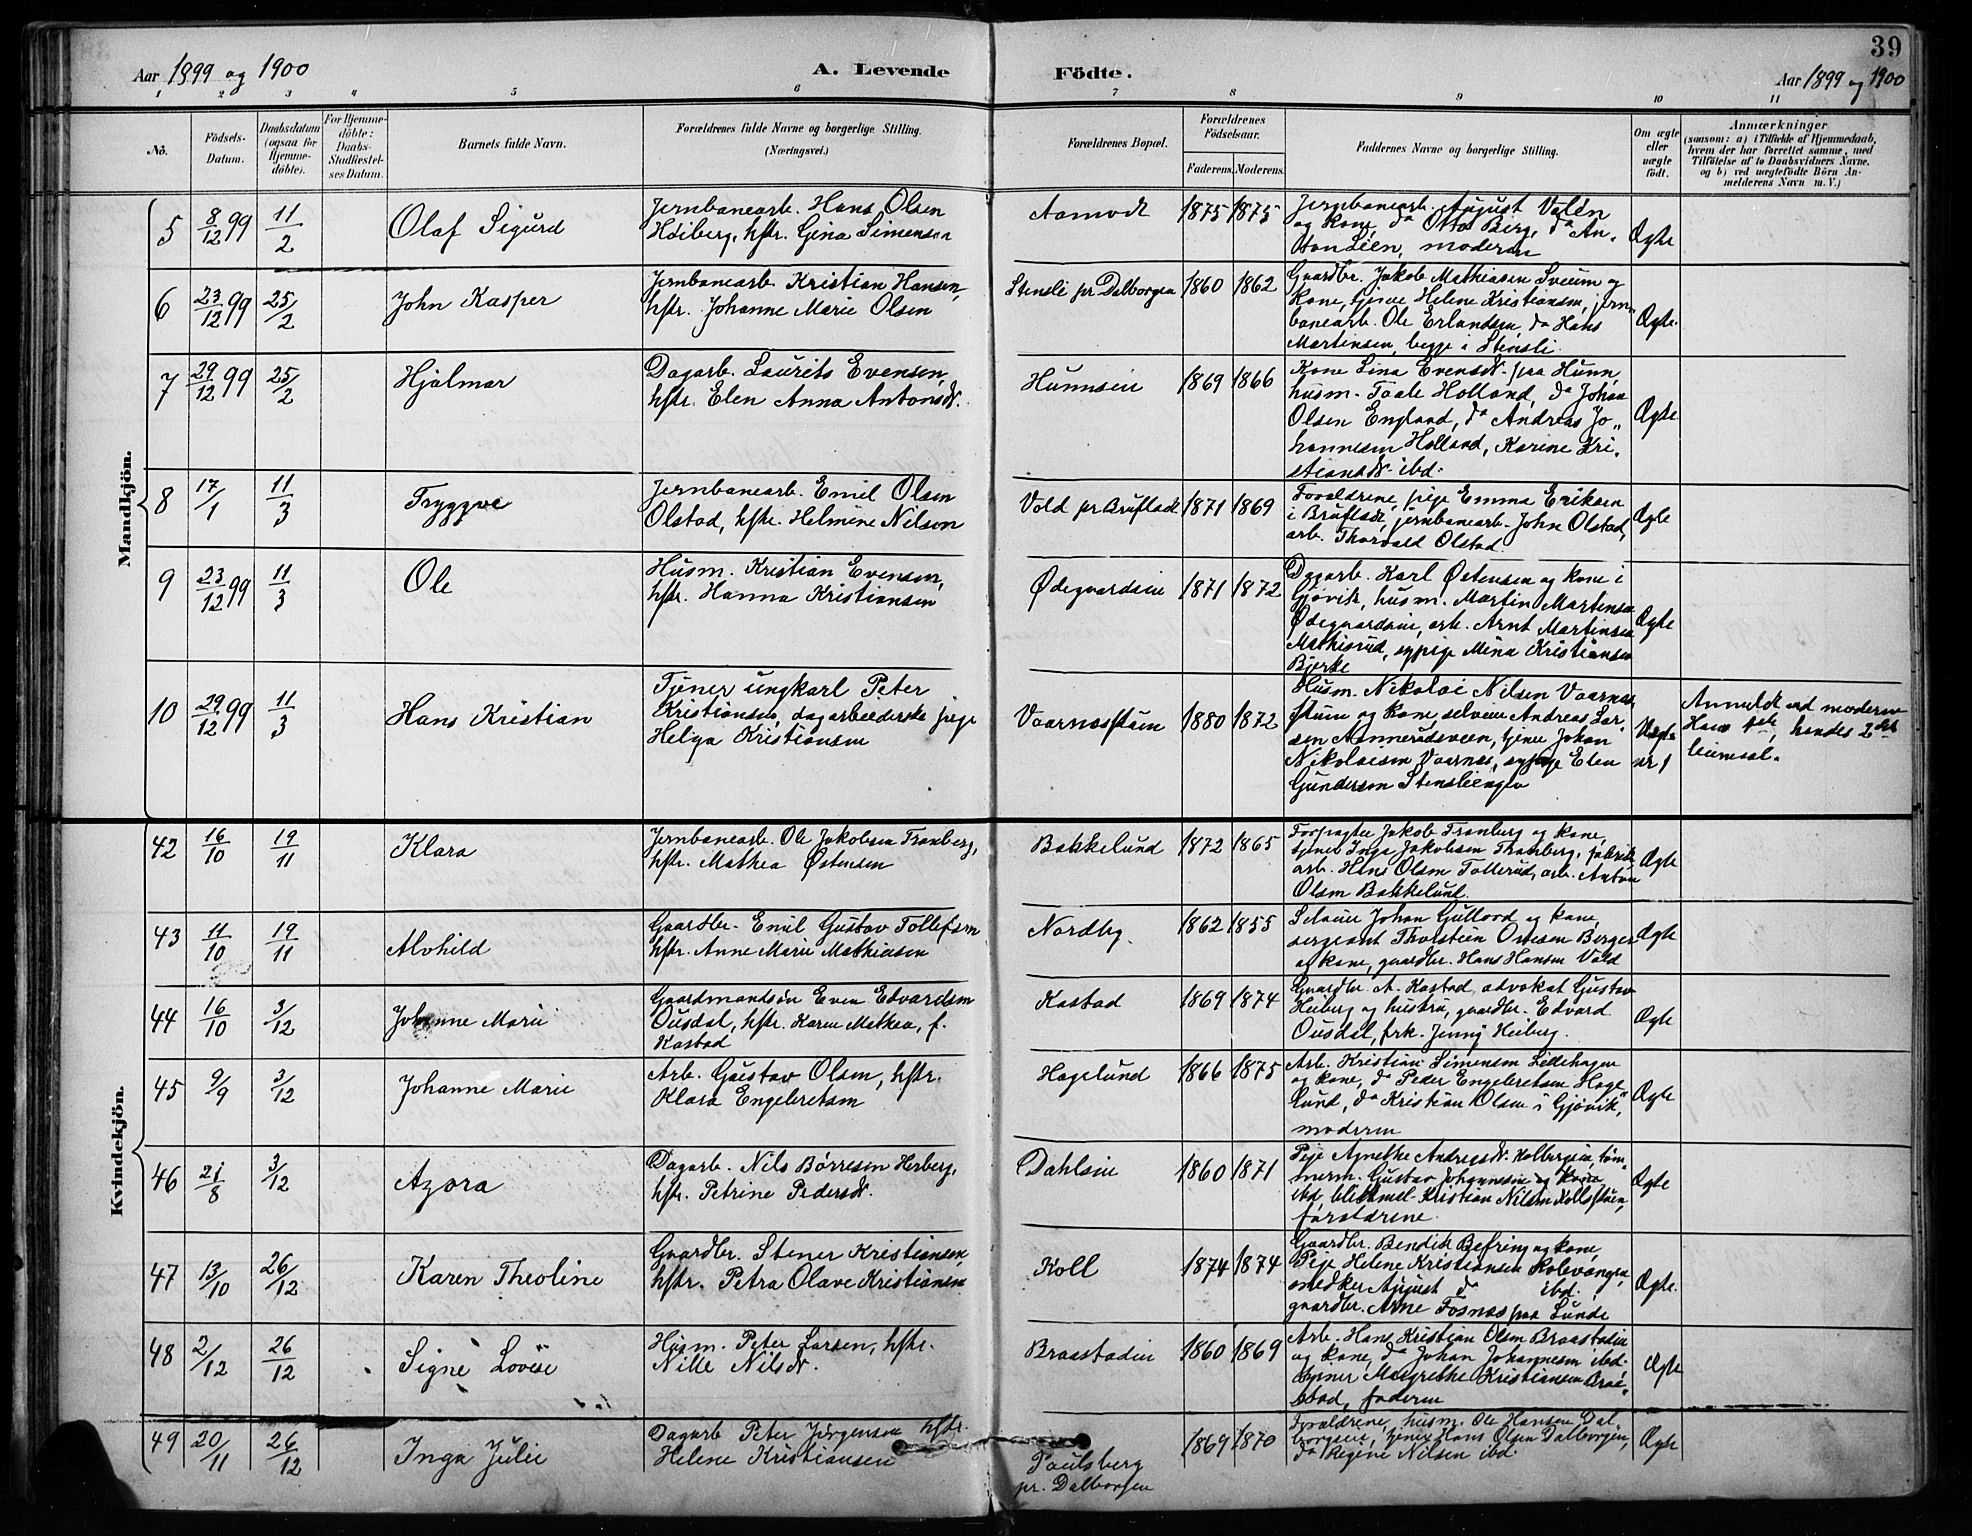 39
Aar 1899 og 1900
A. Levende Födte.
Aar 1899 og 1900
1 2 3 4 5 6 7 8 9 10 11
No.
Födsels-Datum.
Daabsdatum (ogsaa for Hjemme-döbte).
For Hjemme-döbte: Daabs-Stadfæstel-ses Datum.
Barnets fulde Navn.
Forældrenes fulde Navne og borgerlige Stilling. (Næringsvei.)
Forældrenes Bopæl.
Forældrenes Födselsaar.
Faderens. Moderens.
Faddernes Navne og borgerlige Stilling.
Om ægte eller uægte födt.
Anmærkninger
(saasom: a) i Tilfælde af Hjemmedaab,
hvem der har forrettet samme, med
Tilföielse af to Daabsvidners Navne.
og b) ved uægtefödte Börn An-
melderens Navn m. V.)
Mandkjön.
5 8/12 99 11/2 Olaf Sigurd
Jernbanearb. Hans Olsen
Høiberg, hstr. Gina Simensen
Aamodt 1875 1875
Jernbanearb. August Valén
og kone, do Otto Berg, do An-
ton Lien, moderen
Ægte
6 23/12 99 25/2 John Kasper
Jernbanearb. Kristian Hansen,
hstr. Johanne Marie Olsen
Stensli pr Dalborgen 1860 1862
Gaardbr. Jakob Mathiasen Sveum og
kone, tjener Helene Kristiansen, jern-
banearb. Ole Erlandsen, do Hans
Martinsen, begge i Stensli
Ægte
7 29/12 99 25/2 Hjalmar
Dagarb. Laurits Evensen,
hstr. Elen Anna Antonsdr.
Hunnseie 1869 1866
Kone Lina Evensdr. paa Hunn,
husm. Taale Holland, do Johan
Olsen England, do Andreas Jo-
hannesen Holland, Karine Kri-
stiansdr. ibd.
Ægte
8 17/1 11/3 Tryggve
Jernbanearb. Emil Olsen
Olstad, hstr. Helmine Nilsen
Vold pr Brufladt 1871 1869
Forældrene, pige Emma Eriksen
i Brufladt, jernbanearb. John Olstad,
arb. Thorvald Olstad
Ægte
9 23/12 99 11/3 Ole
Husm. Kristian Evensen,
hstr. Hanna Kristiansen
Ødegaardseie 1871 1872
Dagarb. Karl Østensen og kone i
Gjøvik, husm. Martin Martinsen
Ødegaardseie, arb. Arnt Martinsen
Mathisrud, sypige Mina Kristiansen
Bjerke
Ægte
10 29/12 99 11/3 Hans Kristian
Tjener ungkarl Peter
Kristiansen, dagarbeiderske pige
Helga Kristiansen
Vaarnæsstuen 1880 1872
Husm. Nikolai Nilsen Vaarnæs-
stuen og kone, selveier Andreas Lar-
sen Annerudsveen, tjener Johan
Nikolaisen Vaarnæs, sypige Elen
Gundersen Stensliengen
Uægte nr 1
Anmeldt ved moderen
Hans 1ste, hendes 2det
leiermaal.
Kvindekjön.
42 16/10 19/11 Klara
Jernbanearb. Ole Jakobsen Tranberg,
hstr. Mathea Østensen
Bakkelund 1872 1865
Forpagter Jakob Tranberg og kone,
tjener Inga Jakobsen Tranberg, fabrik-
arb. Hans Olsen Tollerud, arb. Anton
Olsen Bakkelund.
Ægte
43 11/10 19/11 Alvhild
Gaardbr. Emil Gustav Tollefsen
hstr. Anne Marie Mathiasen
Nordby. 1862 1855
Selveier Johan Gullord og kone,
sergeant Thorstein Ottesen Berger
og kone, gaardbr. Hans Hansen Vold
Ægte
44 16/10 3/12 Johanne Marie
Gaardmandssøn Even Edvardsen
Ousdal, hstr. Karen Mathea, f.
Kastad
Kastad 1869 1874
Gaardbr. A. Kastad, advokat Gustav
Heiberg og hustru, gaardbr. Edvard
Ousdal, frk. Jenny Heiberg.
Ægte
45 9/9 3/12 Johanne Marie
Arb. Gustav Olsen, hstr.
Klara Engebretsen
Hagelund 1866 1875
Arb. Kristian Simensen Lidehagen
og kone, do Peder Engebretsen Hage-
lund, do Kristian Olsen i Gjøvik,
moderen
Ægte
46 21/8 3/12 Azora
Dagarb. Nils Børresen Herberg,
hstr. Petrine Pedersdr.
Dahlseie 1860 1871
Pige Agnethe Andreasdr. Kolbergeie, tøm-
merm. Gustav Johannesen og kone
ibd, Kristian Nilsen Kollsstuen,
forældrene
Ægte
47 13/10 26/12 Karen Theoline
Gaardbr. Stener Kristiansen,
hstr. Petra Olave Kristiansen
Koll 1874 1874
Gaardbr. Bendik Befring og kone,
Pige Helene Kristiansen
snedker August do ibd.
gaardbr. Arne Fosnæs paa Lunde
Ægte.
48 2/12 26/12 Signe Lovise
Husm. Peter Larsen, hstr.
Nille Nilsdr.
Braastadeie 1860 1869
Arb. Hans Kristian Olsen Braastadeie
og kone, do Johan Johannesen ibd.
tjener Margrethe Kristiansen Braa-
stad, faderen
Ægte
49 20/11 26/12 Inga Julie
Dagarb. Peter Jørgensen hstr.
Helene Kristiansen
Paulsberg
pr. Dalborgen
1869 1870
Forældrene, husm. Ole Hansen Dal-
borgeie, tjener Hans Olsen Dalborgen,
do Regine Nilsen ibd.
Ægte